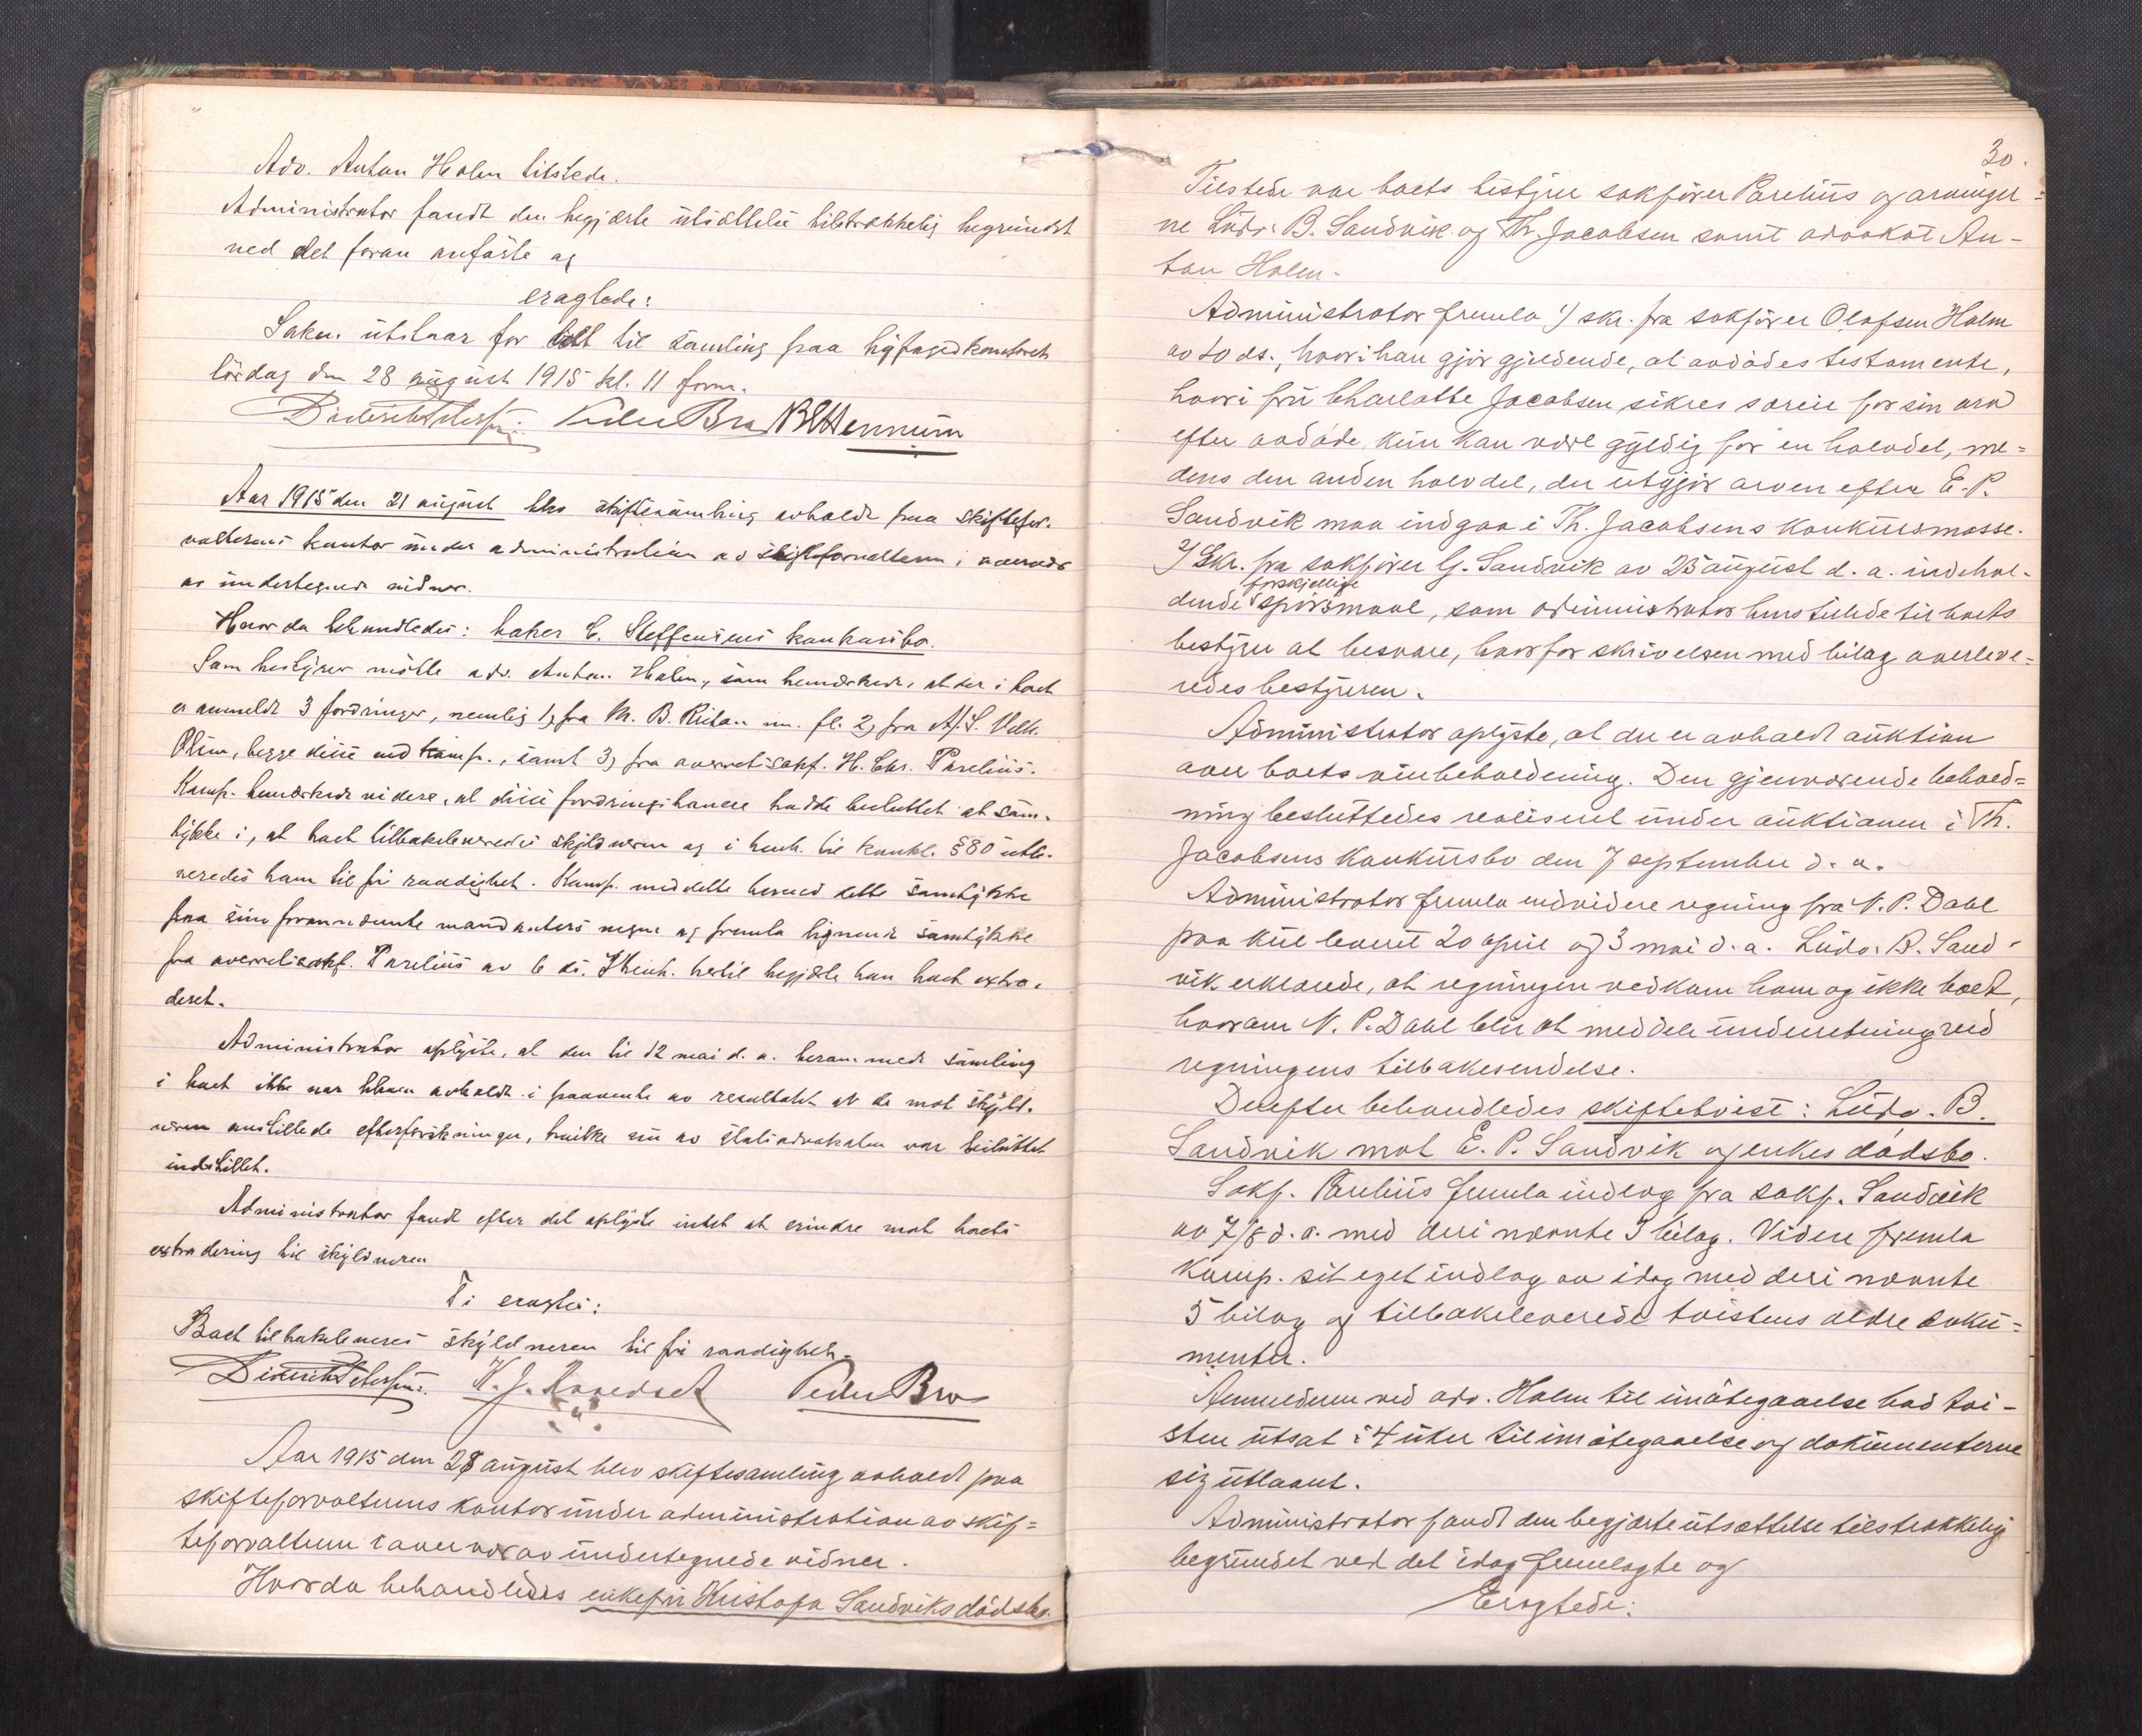 Adv. Anton Holm tilstede.
Administrator fandt den begjærte utsættelse tilstrækkelig begrundet
ved det foran anførte og
eragtede:
Saken utstaar for til samling paa byfogedkontoret
lördag den 28 august 1915 kl. 11 form.
Peder Bro
Aar 1915 den 21 august blev skiftesamling avholdt paa skiftefor-
valterens kontor under administration av skifteforvalteren i overvær
av undertegnede vidner.
Hvorda behandledes: baker C. Steffensens konkursbo.
Som bestyrer mötte adv. Anton Holm, som bemerkede, at der i boet
er anmeldt 3 fordringer, nemlig 1) fra M. B. m. fl. 2) fra A/S.
begge disse ved komp., samt 3) fra overretssakf. H. Chr. Parelius.
Komp. bemærkede videre, at disse fordringshavere hadde besluttet at sam-
tykke i, at boet tilbakeleveredes skyldneren og i henh. til konkl. § 80 utle-
veredes ham til fri raadighet. Komp. meddelte herved dette samtykke
paa sine forannævnte mandanters vegne og fremla lignende samtykke
fra overretssakf. Parelius av 6 ds. I henh. hertil begjærte han boet extra-
deret.
Administrator oplyste, at den til 12 mai d. a. berammede samling
i boet ikke var bleven avholdt i paavente av resultatet av de mot skyld-
neren anstillede efterforskninger, hvilke nu av statsadvokaten var besluttet
indstillet.
Administrator fandt efter det oplyste intet at erindre mot boets
extradering til skyldneren
Ti eragtes:
Boet tilbakeleveres skyldneren til fri raadighet.
Peder Bro
Aar 1915 den 28 august blev skiftesamling avholdt paa
skifteforvalterens kontor under administration av skif=
teforvalteren i overvær av undertegnede vidner.
Hvorda behandledes enkefru Kristofa Sandviks dödsbo.
30.
Tilstede var boets bestyrer sakförer Parelius og arvinger=
ne Ludv. B. Sandvik og Th. Jacobsen samt advokat An-
ton Holm.
Administrator fremla 1) skr. fra sakförer Olafsen Holm
av 10 ds., hvori han gjör gjeldende, at avdödes testamente,
hvori fru Charlotte Jacobsen sikres særeie for sin arv
efter avdöde kun kan være gyldig for en halvdel, me=
dens den anden halvdel, der utgjör arven efter E. P.
Sandvik maa indgaa i Th. Jacobsens konkursmasse.
2) Skr. fra sakförer G. Sandvik av 25 august d. a. indehol-
forskjellige
dende spörsmaal, som administrator henstillede til boets
bestyrer at besvare, hvorfor skrivelsen med bilag overleve=
redes bestyreren.
Administrator oplyste, at der er avholdt auktion
over boets vinbeholdning. Den gjenværende behold=
ning besluttedes realiseret under auktionen i Th.
Jacobsens konkursbo den 7 september d. a.
Administrator fremla endvidere regning fra N. P. Dahl
paa kul leveret 20 april og 3 mai d. a. Ludv. B. Sand-
vik erklærede, at regningen vedkom ham og ikke boet,
hvorom N. P. Dahl blir at meddele underretning ved
regningens tilbakesendelse.
Derefter behandledes skiftetvist: Ludv. B.
Sandvik mot E. P. Sandvik og enkes dödsbo.
Sakf. Parelius fremla indlæg fra sakf. Sandvik
av 7/8 d. a. med deri nævnte 3 bilag. Videre fremla
komp. sit eget indlæg av idag med deri nævnte
5 bilag og tilbakeleverede tvistens ældre doku=
menter.
Anmelderen ved adv. Holm til imötegaaelse bad tvi-
sten utsat i 4 uker til imötegaaelse og dokumenterne
sig utlaant.
Administrator fandt den begjærte utsættelse tilstrækkelig
begrundet ved det idag fremlagte og
Eragtede: